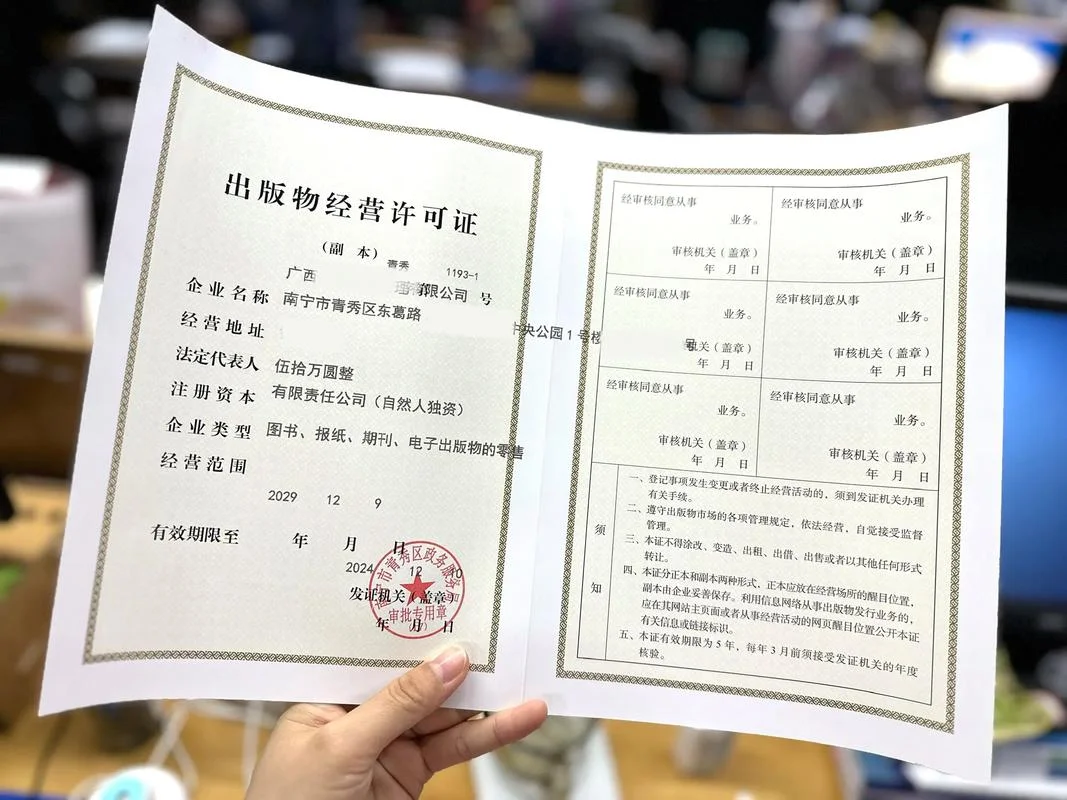 出版物经营许可证
（副 本）
青秀 1193-1
广西 有限公司 号
企业名称 南宁市青秀区东葛路
中央公园1号楼
经营地址
法定代表人 伍拾万圆整
注册资本 有限责任公司（自然人独资）
企业类型 图书、报纸、期刊、电子出版物的零售
经营范围
2029 12 9
有效期限至 年 月 日
2024 12 10
发证机关（盖章）
年 月 日
南宁市青秀区政务服务局
审批专用章
经审核同意从事
业务。
审核机关（盖章）
年 月 日
经审核同意从事
业务。
审核机关（盖章）
年 月 日
经审核同意从事
业务。
号
机关（盖章）
年 月 日
经审核同意从事
业务。
审核机关（盖章）
年 月 日
经审核同意从事
业务。
审核机关（盖章）
年 月 日
经审核同意从事
业务。
审核机关（盖章）
年 月 日
须知
一、登记事项发生变更或者终止经营活动的，须到发证机关办理
有关手续。
二、遵守出版物市场的各项管理规定，依法经营，自觉接受监督
管理。
三、本证不得涂改、变造、出租、出借、出售或者以其他任何形式
转让。
四、本证分正本和副本两种形式，正本应放在经营场所的醒目位置，
副本由企业妥善保存。利用信息网络从事出版物发行业务的，
应在其网站主页面或者从事经营活动的网页醒目位置公开本证
有关信息或链接标识。
五、本证有效期限为5年，每年3月前须接受发证机关的年度
核验。